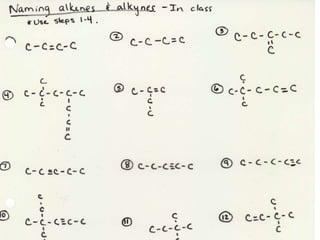 Naming alkenes & alkynes - In class
* Use steps 1-4.
C-C=C-C
② C-C-C=C
③ C-C-C-C-C
C
④ C
C-C-C-C-C
C C
C
C
⑤ C-C=C
C
C
⑥ C
C-C-C-C=C
C
⑦ C-C≡C-C-C
⑧ C-C-C≡C-C
⑨ C-C-C-C≡C
⑩ C
C
C-C-C≡C-C
C
⑪ C
C-C-C-C
C
⑫ C
C=C-C-C
C